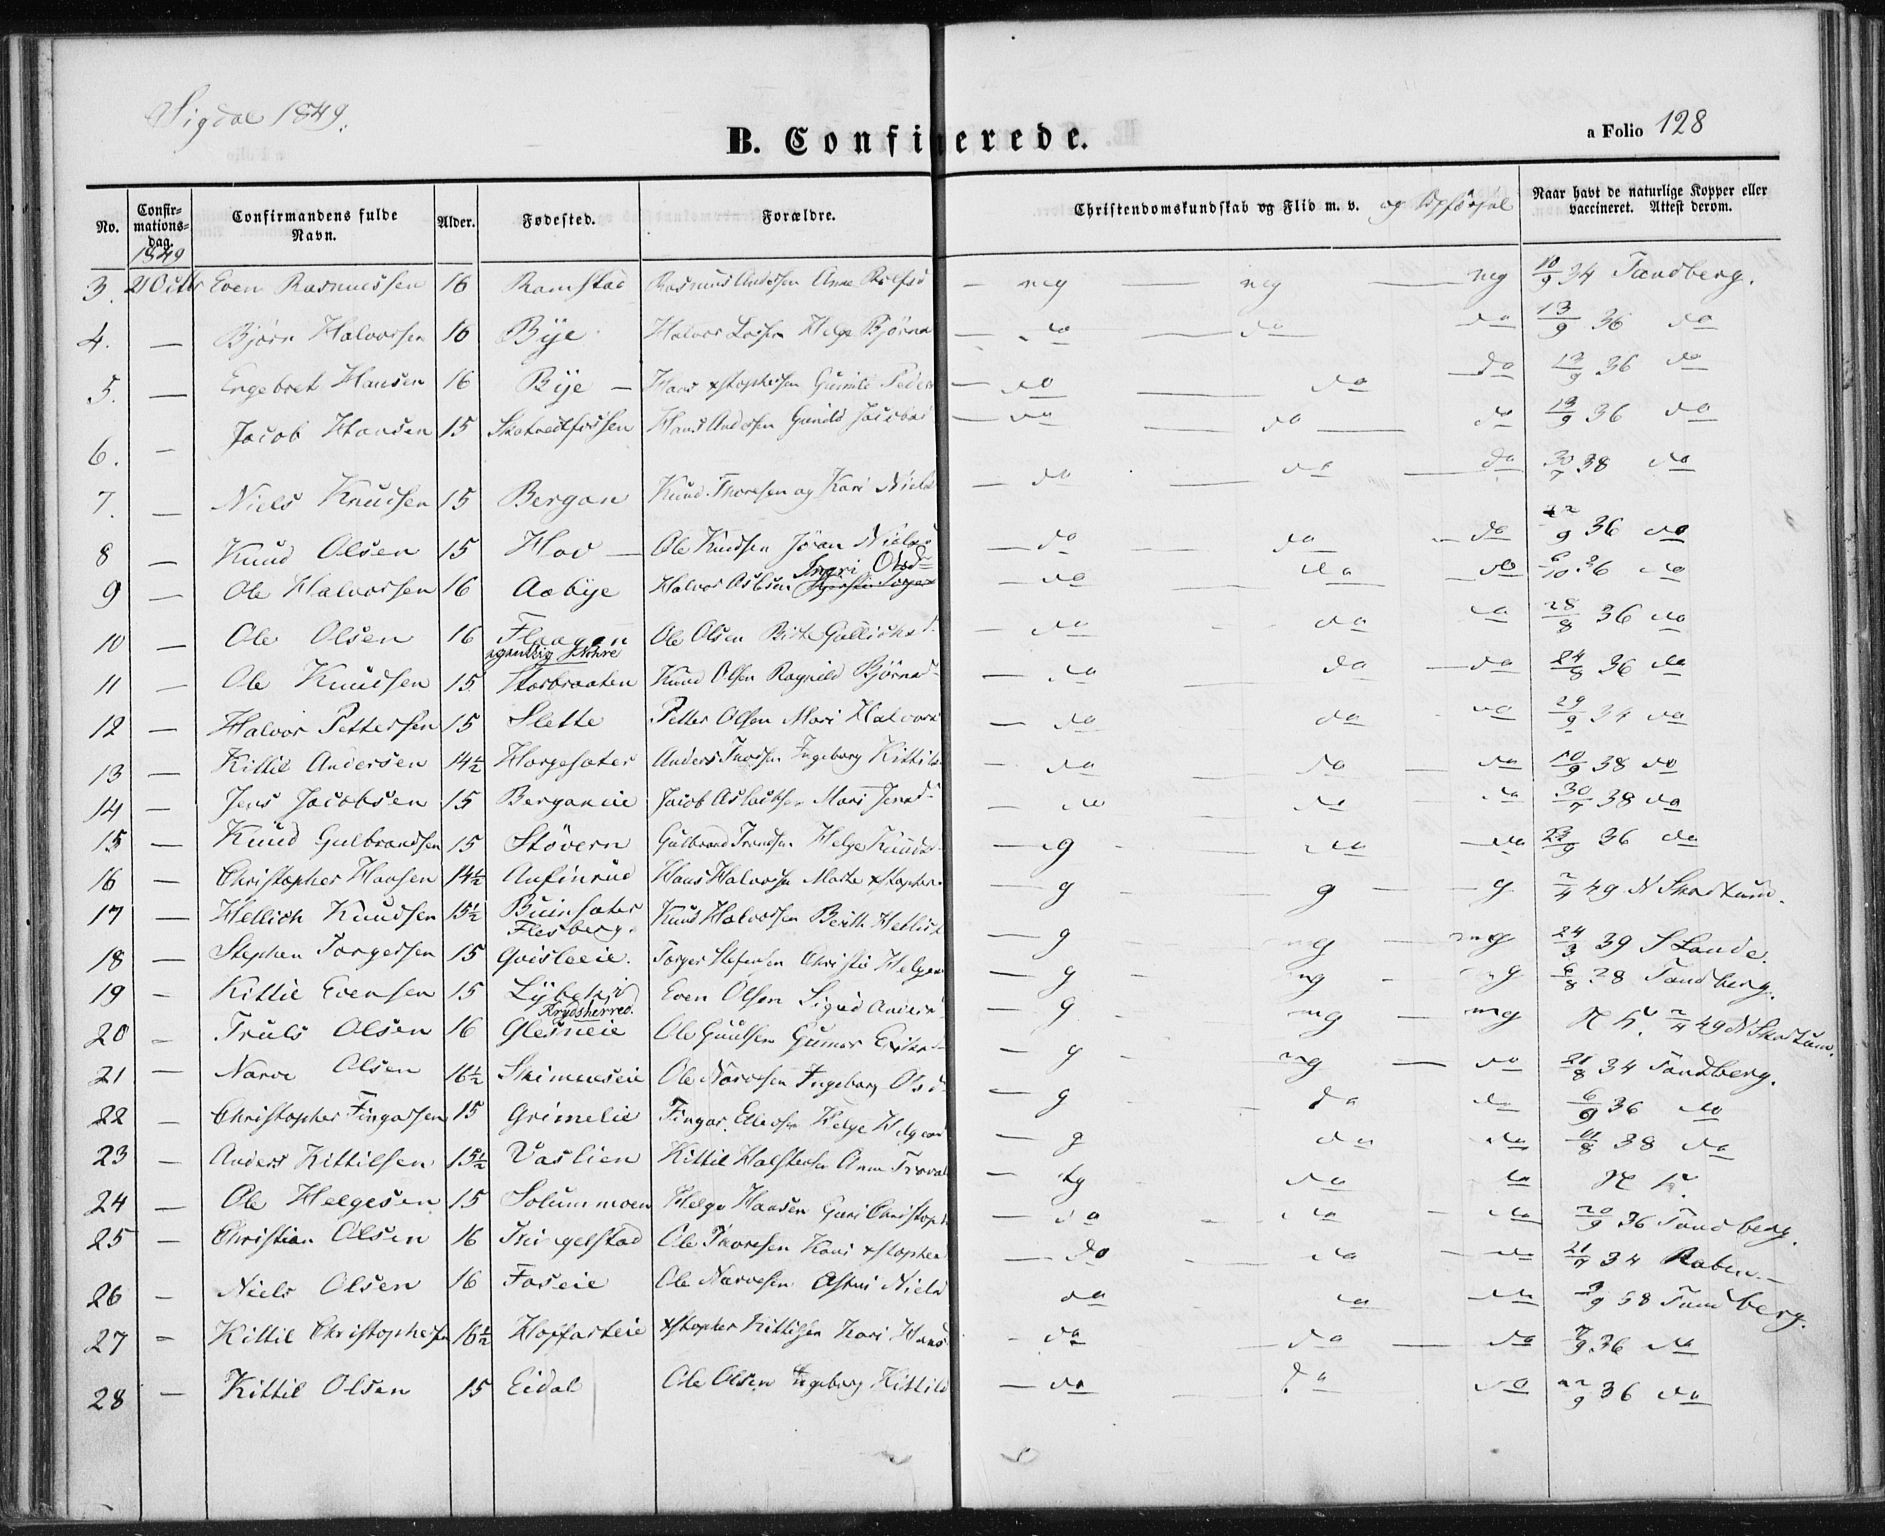 Sigdal 1849.
B. Confirmerede.
a Folio 128
No. Confirmationsdag. 1849 Confirmandens fulde Navn. Alder. Fødested. Forældre. Christendomskundskab og Flid m. v. og Opførsel Naar havt de naturlige Kopper eller vaccineret. Attest derom.
3. Even Rasmussen 16 Ramstad Rasmus Andersen Anne — mg — mg — mg 10/9 34 Tandberg.
4. — Bjørn Halvorsen 16 Bye Halvor Helge Bjørns — do — do do 13/9 36 do
5. — Engebret Hansen 16 Bye — Hans xstophersen Gunild Peders — do — do — do 13/9 36 do
6. — Jacob Hansen 15 Hans Andersen Gunild Jacobs — do — do — do 13/9 36 do
7. — Niels Knudsen 15 Bergan Knud Thoresen og Kari Niels — do — do — do 30/7 38 do
8 — Knud Olsen 15 Hov — Ole Knudsen Jøran Niels — do — do — do 9 36 do
9 — Ole Halvorsen 16 Aabye Halvor Ingri Olsd — do do — do 6/10 36 do
10 — Ole Olsen 16 Flaagan Ole Olsen Birte — do do do 28/8 36 do
11 — Ole Knudsen 15 Storbraaten Knud Olsen Ragnild Bjørnsd — do — do — do 24/8 36 do
12 — Halvor Pettersen 15 Slette Petter Olsen Mari Halvors — do do do 29/9 34 do
13 — Kittil Andersen 14½ Horgesæter Anders Ingeborg Kittils — do do — do 10/9 38 do
14 — Jens Jacobsen 15 Berganeie Jacob Aslaksen Mari Jensd — do do do 30/7 38 do
15 — Knud Gulbrandsen 15 Støvern Gulbrand Helge Knuds — g do do 23/9 36 do
16 — Christopher Hansen 14½ Anfinrud Hans Halvorsen Marte xstopher — g g — g 2/4 49 N Skartum.
17 — Hellich Knudsen 15½ Buinsæter Flesberg. Knud Halvorsen Berith Hellich — g mg — mg 24/3 39 S Lande.
18 — Stephen Torgersen 15 Qvisleeie. Torger Stefensen Christi Helges — g mg mg 6/8 38 Tandberg.
19 — Kittil Evensen 15 Even Olsen Sigrid Anders — g mg — mg N K. 2/4 49 N Skartum.
20 — Truls Olsen 16 Krydsherred. Glesneie Ole Gunner — g mg — do 21/8 34 Tandberg.
21 — Narve Olsen 16½ Ole Narvesen Ingeborg Olsd — g — do do 6/9 36 do
22 — Christopher Fingarsen 15 Grimelie Fingar Helge Helges — g do do 11/8 38 do
23 — Anders Kittilsen 15½ Vaslien Kittil Anne — tg do do N K.
24 — Ole Helgesen 15 Solummoen Helge Hansen Guri Christoph — do do — do 20/9 36 Tandberg.
25 — Christian Olsen 16 Ingelstad Ole Thoresen Kari xstopher — do do — do 21/7 34 Raben.
26 — Niels Olsen 16 Foseie Ole Narvesen Astrid Niels do do do 3/9 38 Tandberg.
27 — Kittil Christophersen 16½ Hoffarteie xstopher Kittilsen Kari Hans — do do — do 7/9 36 do
28 — Kittil Olsen 15 Eidal Ole Olsen Ingeborg Kittils — do do do 22/9 36 do